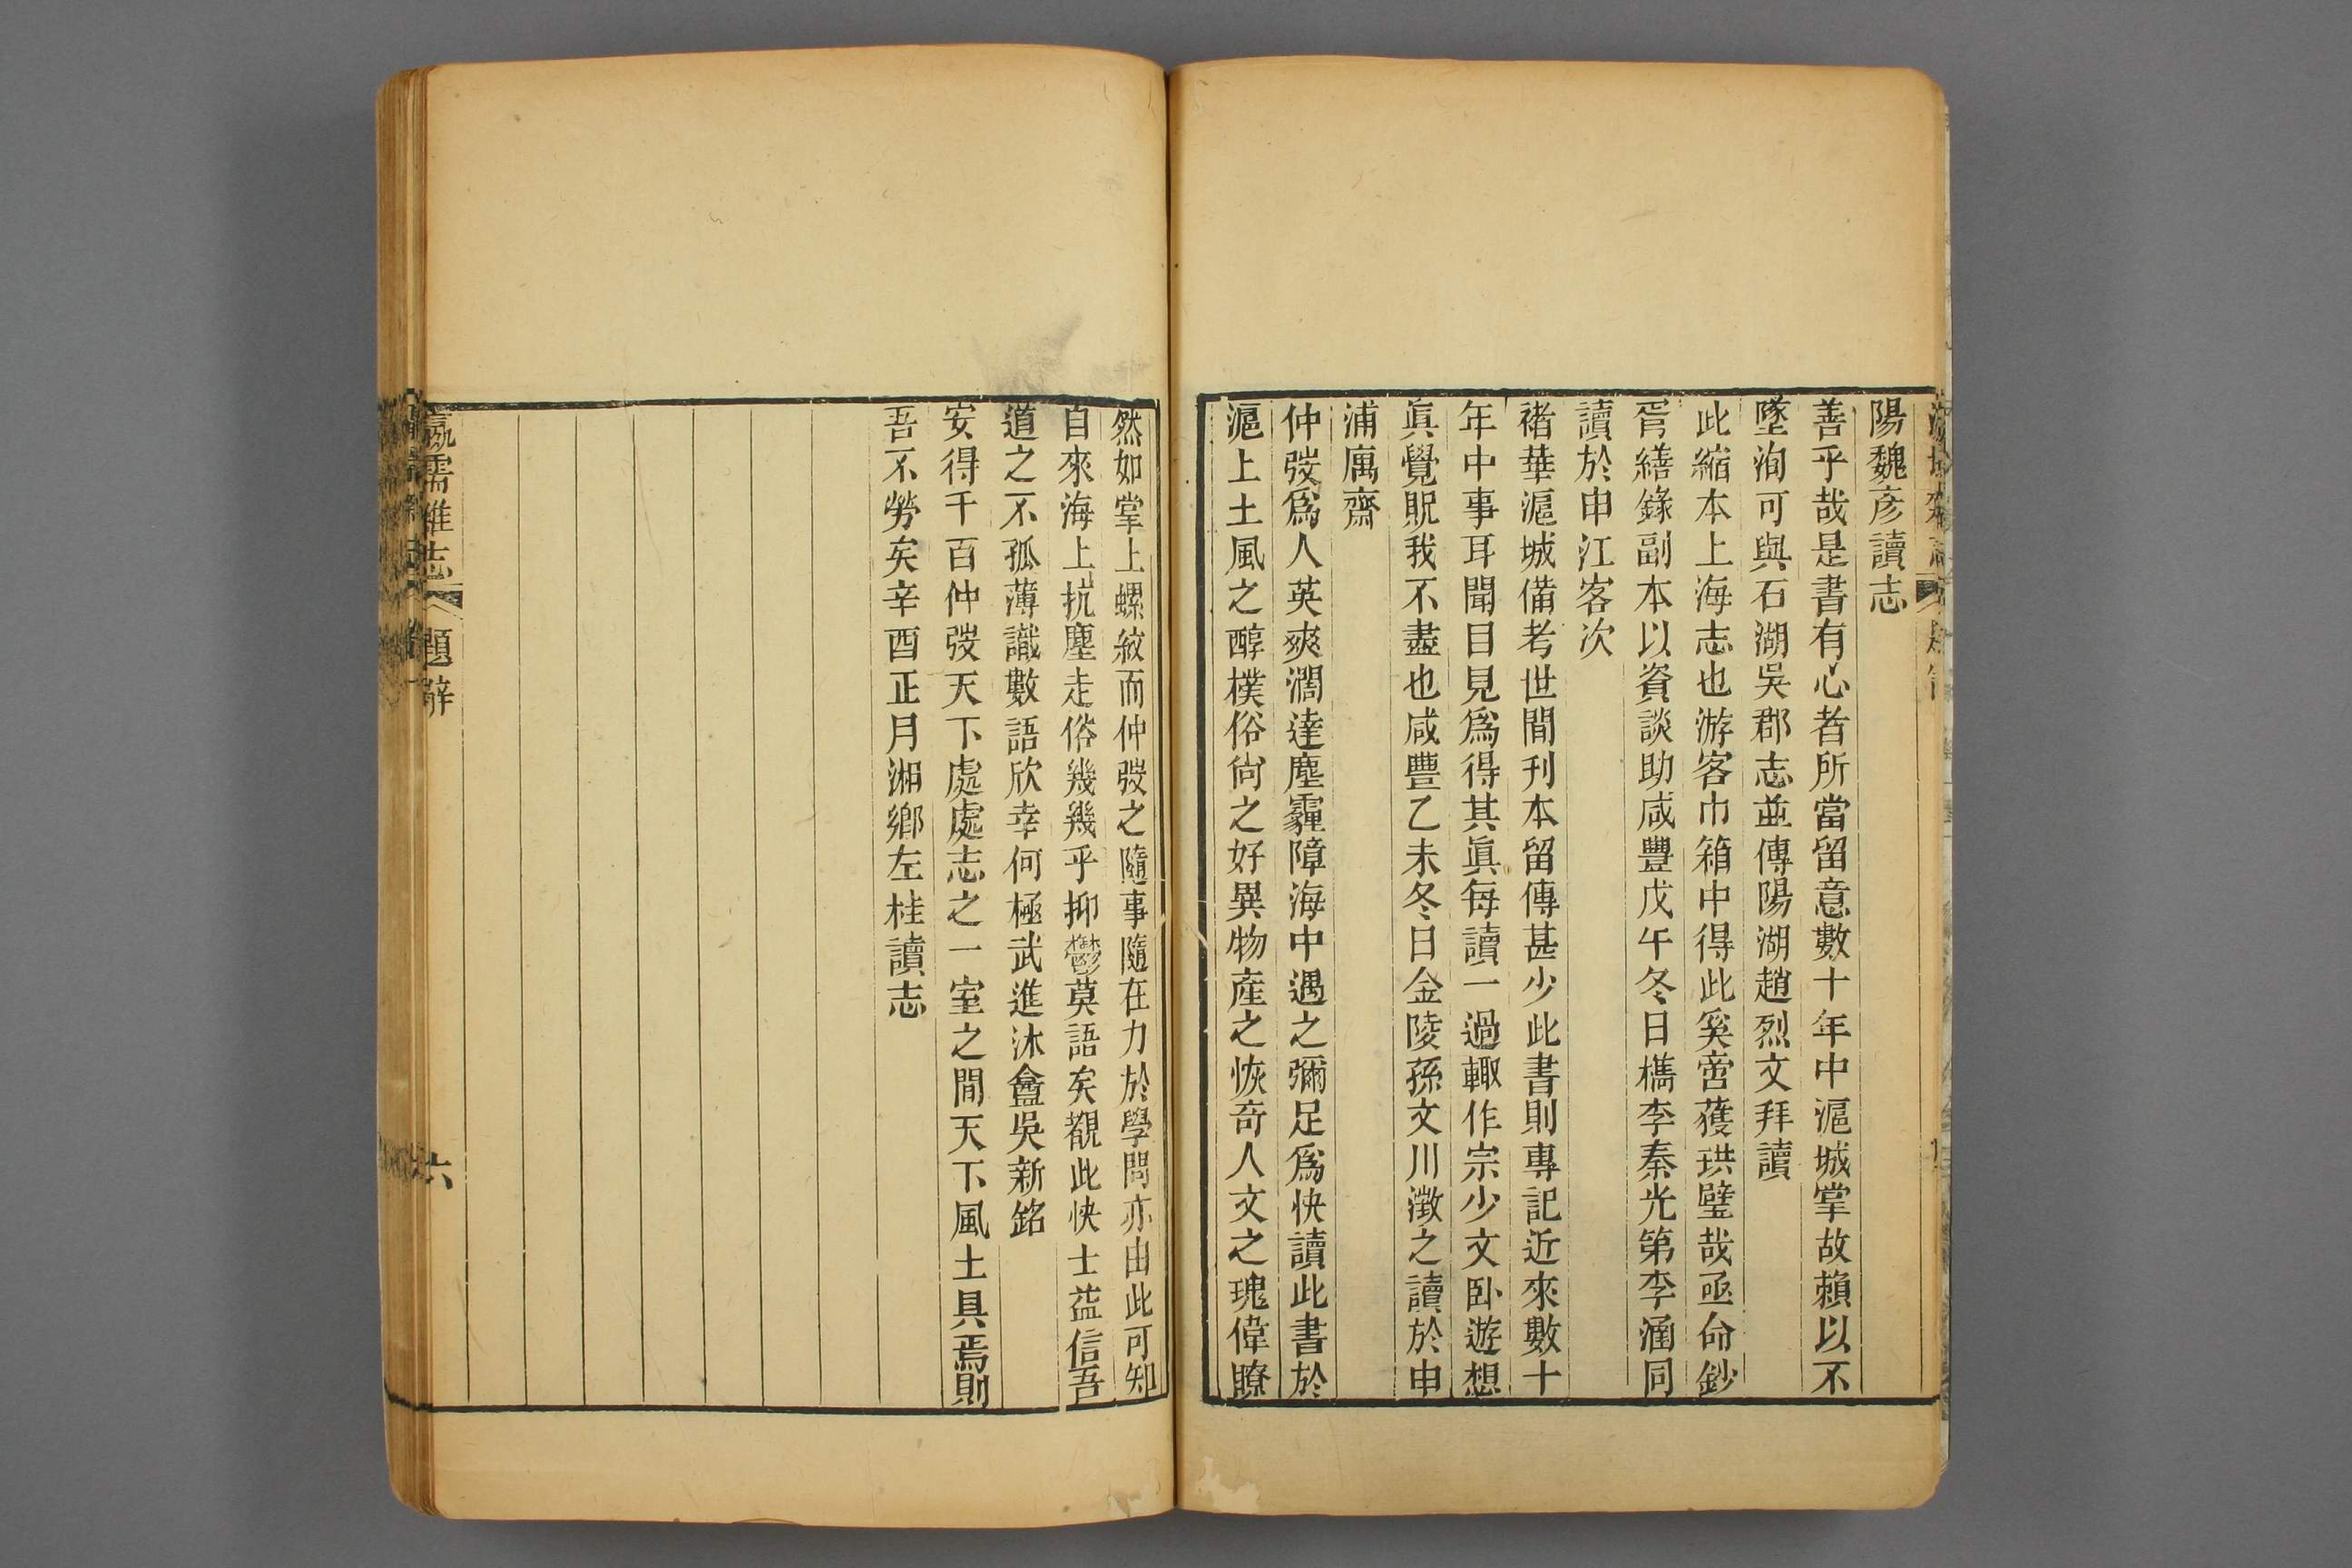 陽魏彥讀志
善乎哉是書有心者所當留意數十年中滬城掌故賴以不
墜洵可與石湖吳郡志並傳陽湖趙烈文拜讀
此縮本上海志也游客巾箱中得此奚啻獲珙璧哉亟命鈔
胥繕錄副本以資談助咸豐戊午冬日檇李秦光第李涵同
讀於申江客次
褚華滬城備考世間刊本留傳甚少此書則專記近來數十
年中事耳聞目見爲得其眞每讀一過輙作宗少文臥遊想
眞覺貺我不盡也咸豐乙未冬日金陵孫文川澂之讀於申
浦寓齋
仲弢爲人英爽濶達塵霾障海中遇之彌足爲快讀此書於
滬上土風之醇樸俗尙之好異物產之恢奇人文之瑰偉瞭
然如掌上螺紋而仲弢之隨事隨在力於學問亦由此可知
自來海上抗塵走俗幾幾乎抑鬱莫語矣覯此快士益信吾
道之不孤薄識數語欣幸何極武進沐盦吳新銘
安得千百仲弢天下處處志之一室之間天下風土具焉則
吾不勞矣辛酉正月湘鄉左桂讀志
瀛壖雜志 題辭 六